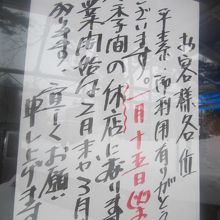 お客様各位
平素ご利用有りがとう
ございます。一月十五日(土)
冬季間の休店に入ります
業開始は2月末や3月
なります。宜しくお願
申し上げます